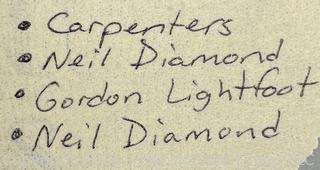 • Carpenters
• Neil Diamond
• Gordon Lightfoot
• Neil Diamond